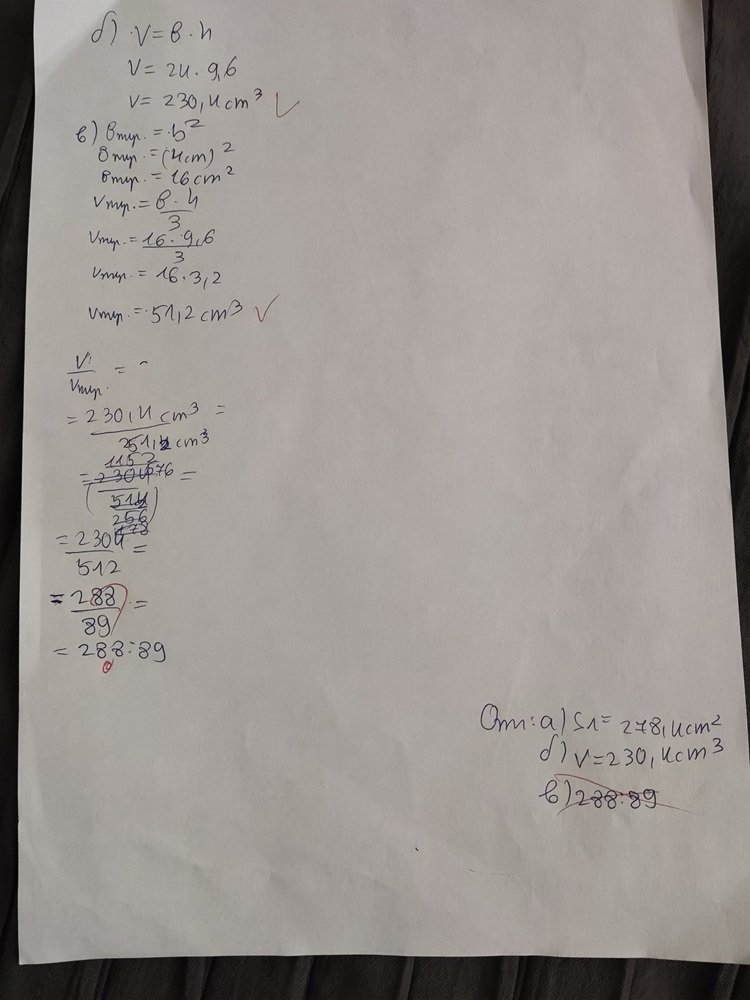 б) V = B . h
V = 24 . 9,6
V = 230,4 cm³ ✓
в) Bпир. = b²
Bпир. = (4cm)²
Bпир. = 16 cm²
Vпир. = B . h / 3
Vпир. = 16 . 9,6 / 3
Vпир. = 16 . 3,2
Vпир. = 51,2 cm³ ✓
V / Vпир. = ?
= 230,4 cm³ / 51,2 cm³ =
= 2304 / 512 =
= 288 / 89 =
= 288 : 89
Отг: а) S1 = 278,4 cm²
б) V = 230,4 cm³
в) 288:89